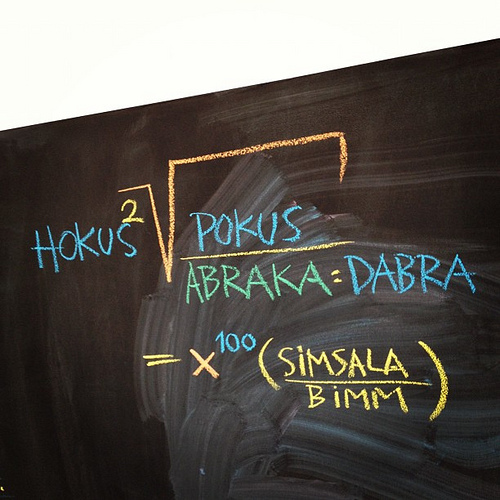 HOKUS² √POKUS
ABRAKA=DABRA
= x¹⁰⁰ (SiMSALA
BiMM)